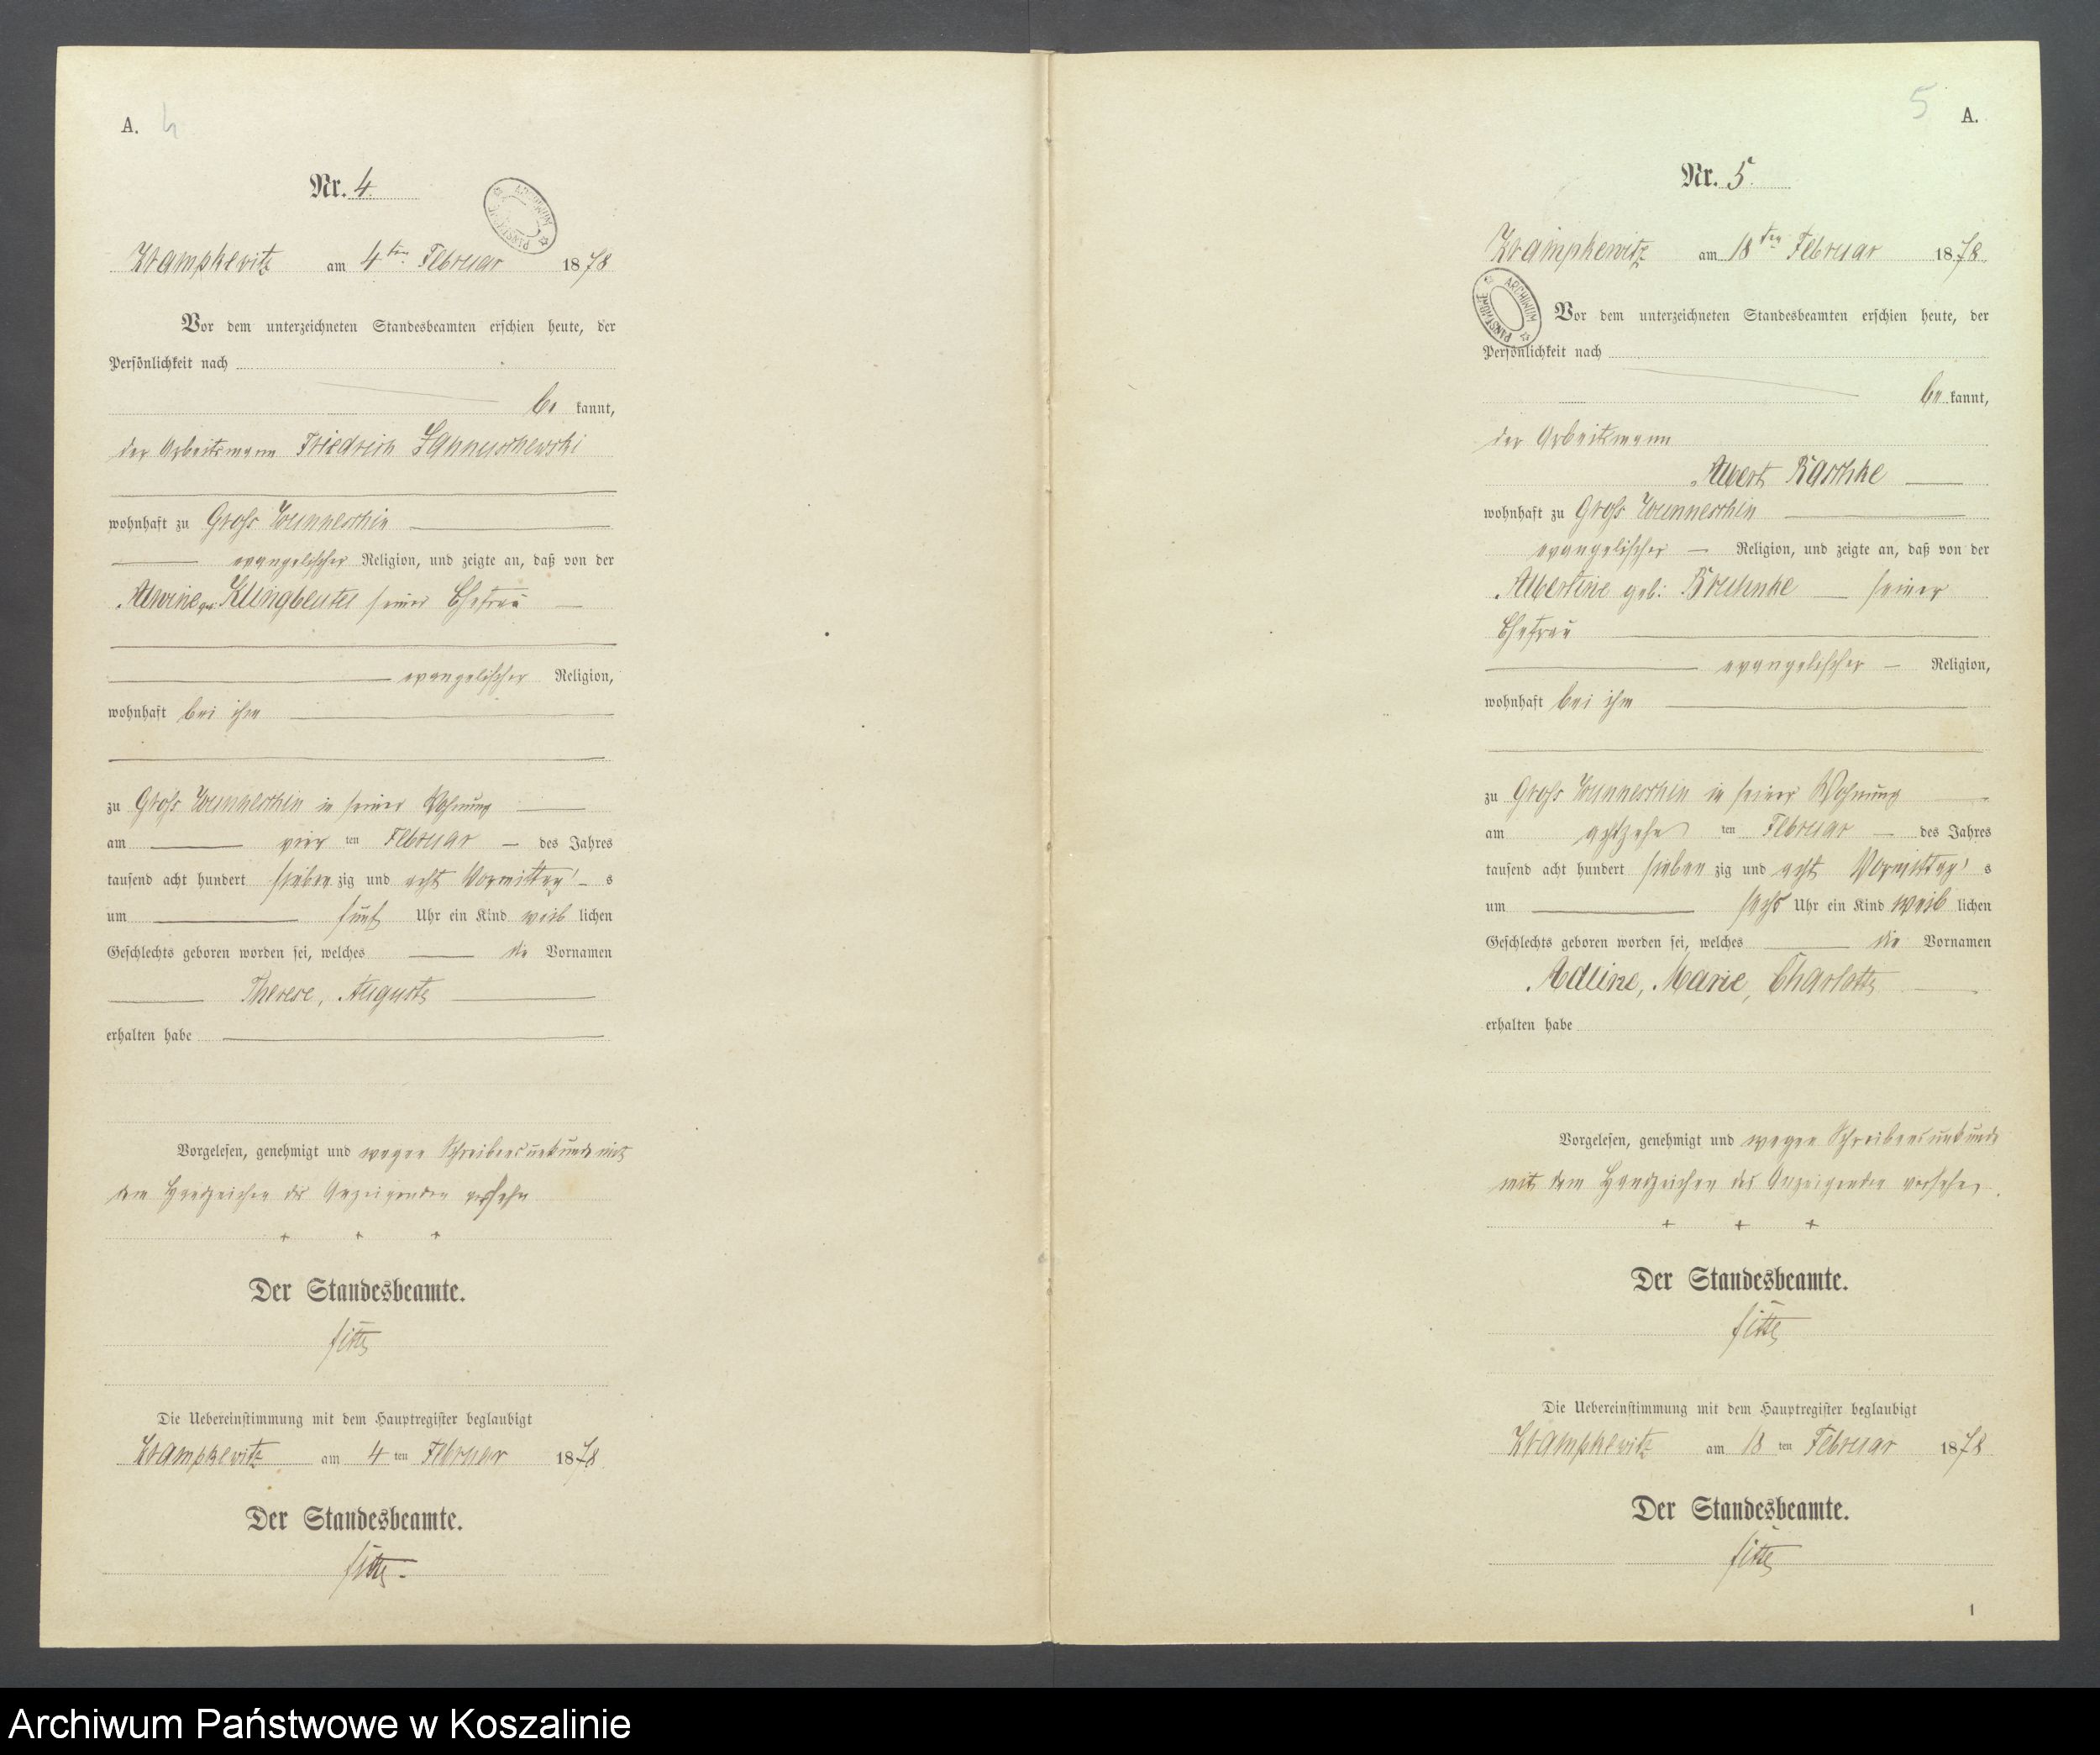 A. 4
Nr. 4.
Krampkewitz am 4ten Februar 1878
Vor dem unterzeichneten Standesbeamten erschien heute, der
Persönlichkeit nach
be kannt,
der Arbeitsmann Friedrich
wohnhaft zu Gross Wunneschin
evangelischer Religion, und zeigte an, daß von der
Alwine geb. Klingbeutel seiner Ehefrau
evangelischer Religion,
wohnhaft bei ihm
zu Gross Wunneschin in seiner Wohnung
am vier ten Februar des Jahres
tausend acht hundert sieben zig und acht Vormittag s
um fünf Uhr ein Kind weib lichen
Geschlechts geboren worden sei, welches die Vornamen
Therese, Auguste
erhalten habe
Vorgelesen, genehmigt und wegen Schreibensunkunde mit
dem Handzeichen des Anzeigenden versehen
+ + +
Der Standesbeamte.
Die Uebereinstimmung mit dem Hauptregister beglaubigt
Krampkewitz am 4 ten Februar 1878
Der Standesbeamte.
5 A.
Nr. 5.
Krampkewitz am 18ten Februar 1878.
Vor dem unterzeichneten Standesbeamten erschien heute, der
Persönlichkeit nach
be kannt,
der Arbeitsmann
Albert Raschke
wohnhaft zu Gross Wunneschin
evangelischer Religion, und zeigte an, daß von der
Albertine geb: seiner
Ehefrau
evangelischer Religion,
wohnhaft bei ihm
zu Gross Wunneschin in seiner Wohnung
am achtzehn ten Februar des Jahres
tausend acht hundert sieben zig und acht Vormittag s
um sechs Uhr ein Kind weib lichen
Geschlechts geboren worden sei, welches die Vornamen
Adline, Marie, Charlotte
erhalten habe
Vorgelesen, genehmigt und wegen Schreibensunkunde
mit dem Handzeichen des Anzeigenden versehen.
+ + +
Der Standesbeamte.
Die Uebereinstimmung mit dem Hauptregister beglaubigt
Krampkewitz am 18 ten Februar 1878
Der Standesbeamte.
1
Archiwum Państwowe w Koszalinie